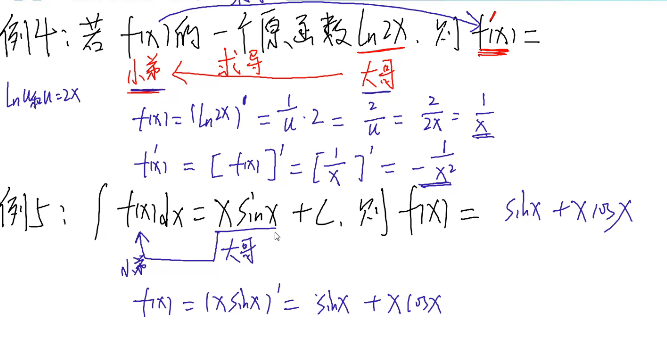 例4：若f(x)的一个原函数ln2x，则f'(x)=
小弟 求导 大哥
lnu和u=2x
f(x)=(ln2x)'=1/u·2=2/u=2/2x=1/x
f'(x)=[f(x)]'=[1/x]'=-1/x²
例5：∫f(x)dx=xsinx+C，则f(x)= sinx+xcosx
小弟 大哥
f(x)=(xsinx)'=sinx+xcosx